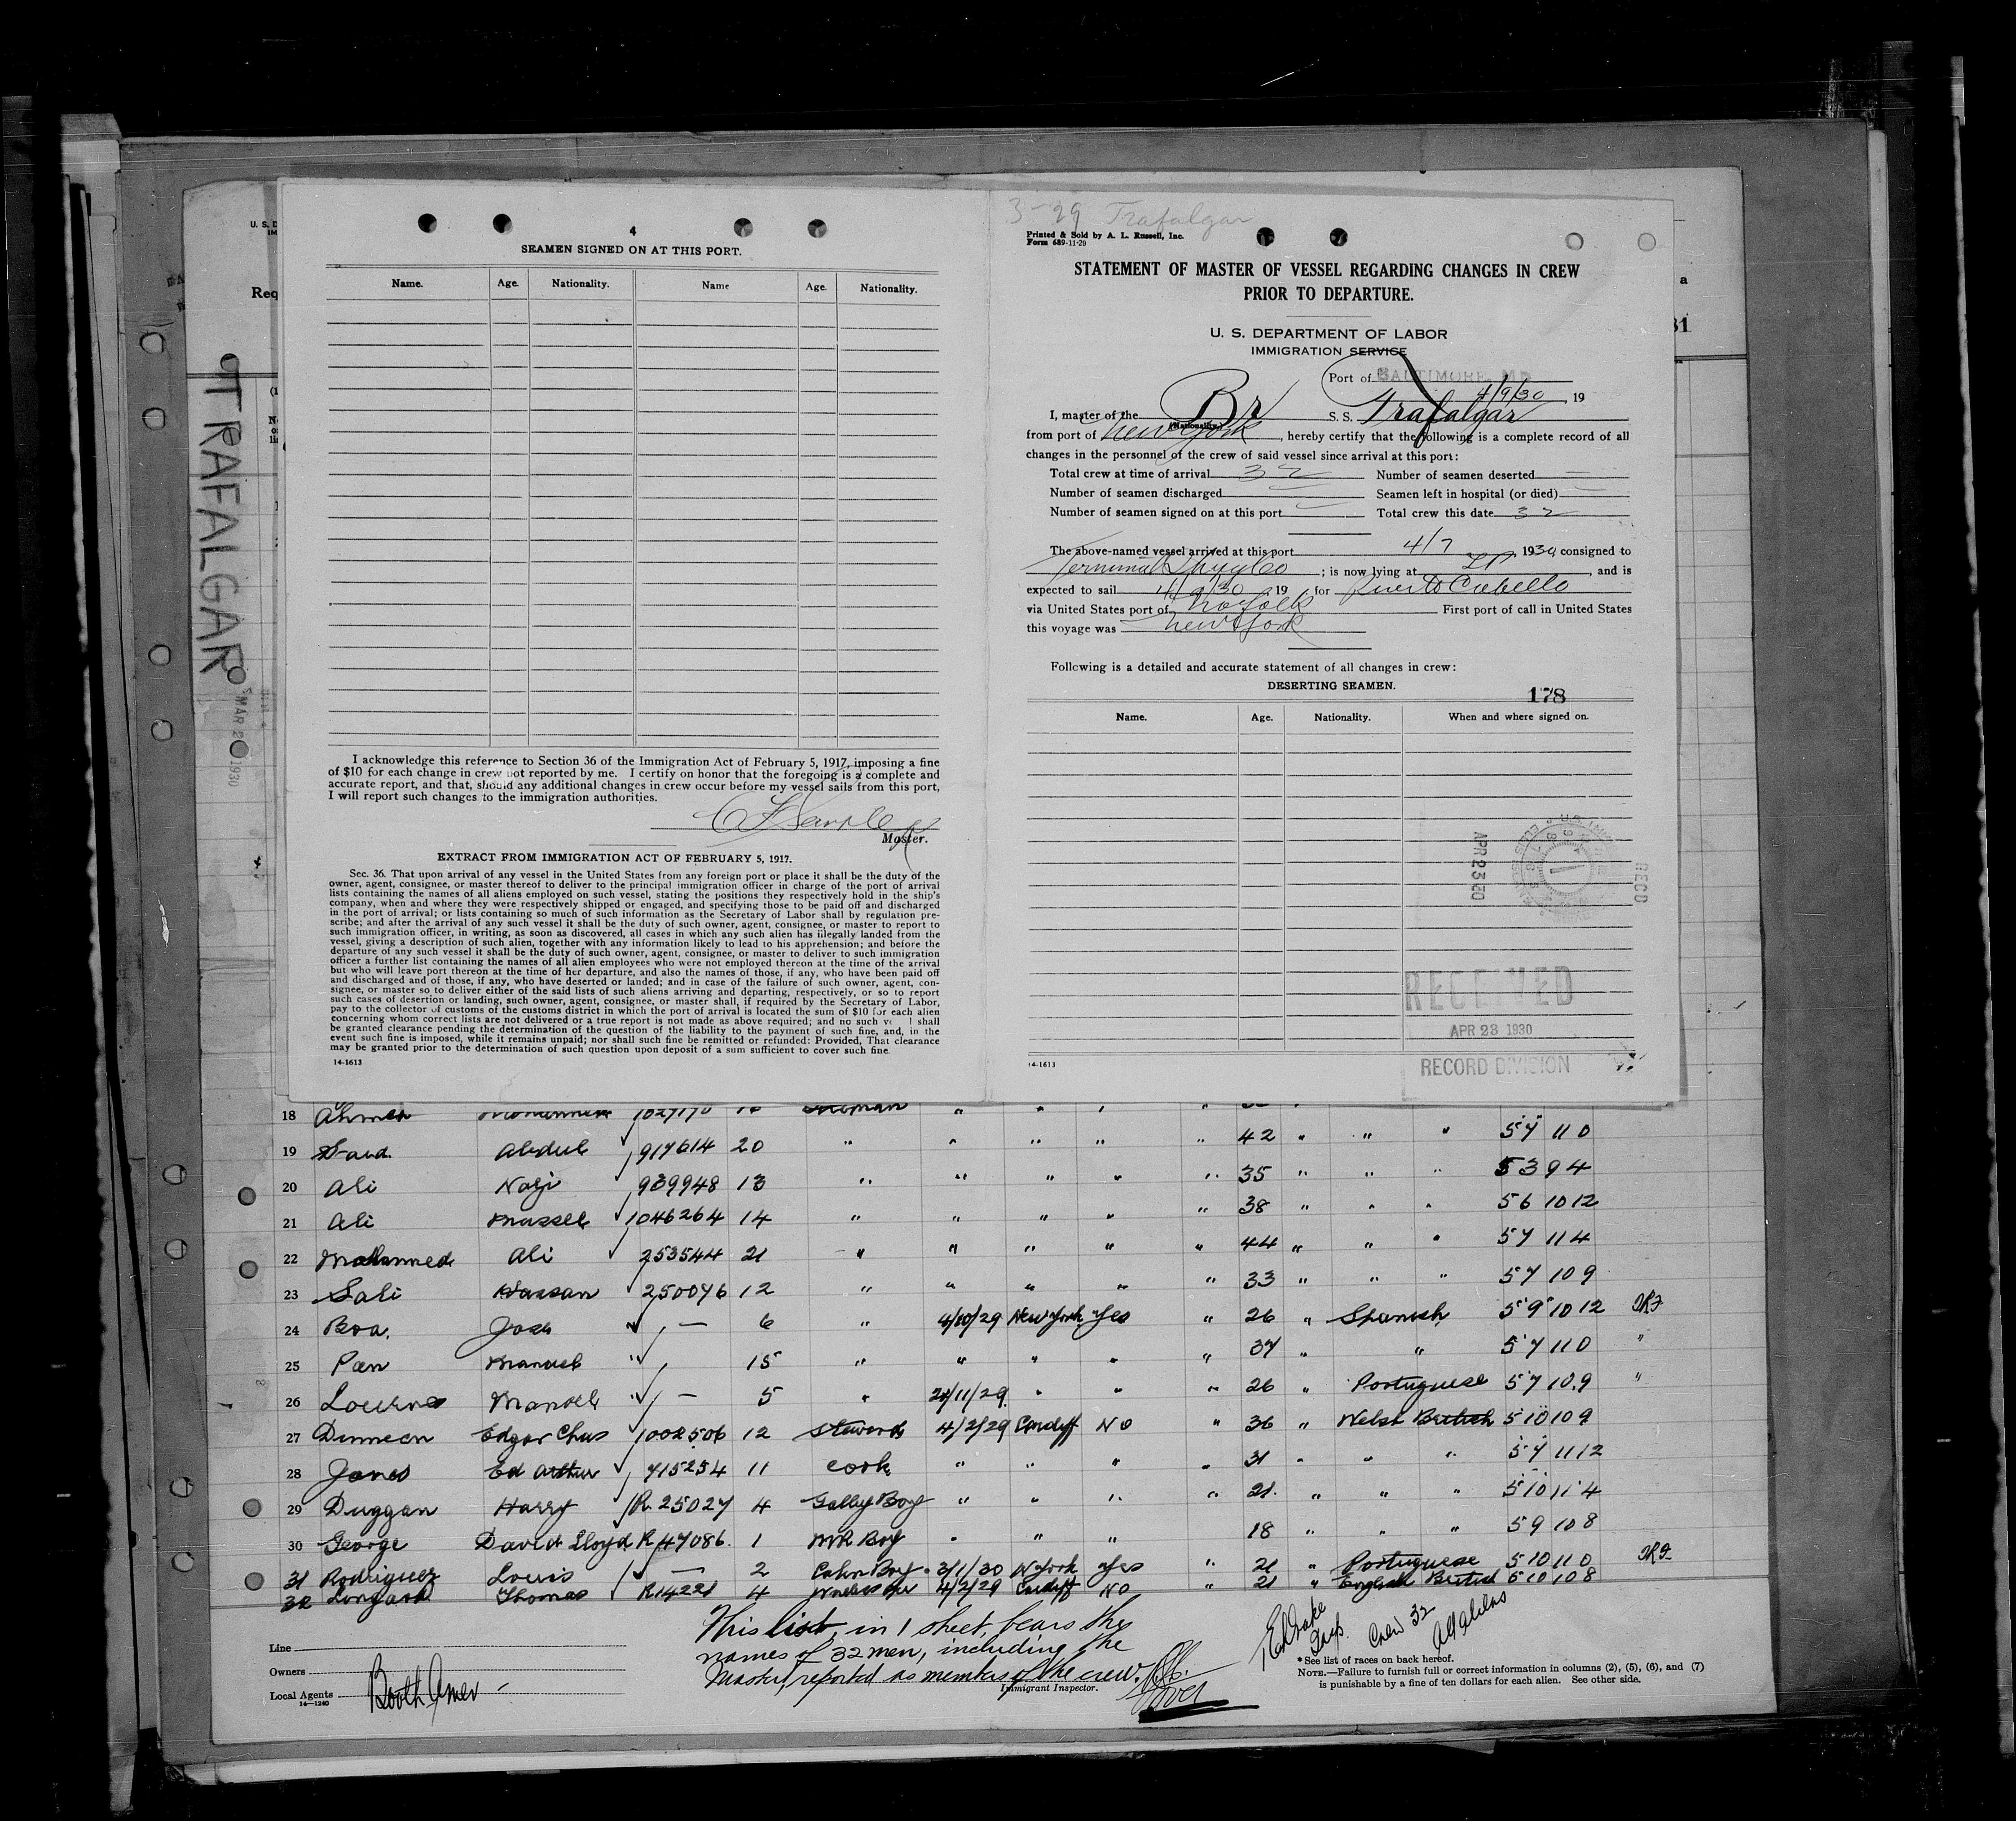 TRAFALGAR
MAR 2 1930
U. S. D
Req
4
SEAMEN SIGNED ON AT THIS PORT.
Name. Age. Nationality. Name Age. Nationality.
I acknowledge this reference to Section 36 of the Immigration Act of February 5, 1917, imposing a fine
of $10 for each change in crew not reported by me. I certify on honor that the foregoing is a complete and
accurate report, and that, should any additional changes in crew occur before my vessel sails from this port,
I will report such changes to the immigration authorities.
Master.
EXTRACT FROM IMMIGRATION ACT OF FEBRUARY 5, 1917.
Sec. 36. That upon arrival of any vessel in the United States from any foreign port or place it shall be the duty of the
owner, agent, consignee, or master thereof to deliver to the principal immigration officer in charge of the port of arrival
lists containing the names of all aliens employed on such vessel, stating the positions they respectively hold in the ship's
company, when and where they were respectively shipped or engaged, and specifying those to be paid off and discharged
in the port of arrival; or lists containing so much of such information as the Secretary of Labor shall by regulation pre-
scribe; and after the arrival of any such vessel it shall be the duty of such owner, agent, consignee, or master to report to
such immigration officer, in writing, as soon as discovered, all cases in which any such alien has illegally landed from the
vessel, giving a description of such alien, together with any information likely to lead to his apprehension; and before the
departure of any such vessel it shall be the duty of such owner, agent, consignee, or master to deliver to such immigration
officer a further list containing the names of all alien employees who were not employed thereon at the time of the arrival
but who will leave port thereon at the time of her departure, and also the names of those, if any, who have been paid off
and discharged and of those, if any, who have deserted or landed; and in case of the failure of such owner, agent, con-
signee, or master so to deliver either of the said lists of such aliens arriving and departing, respectively, or so to report
such cases of desertion or landing, such owner, agent, consignee, or master shall, if required by the Secretary of Labor,
pay to the collector of customs of the customs district in which the port of arrival is located the sum of $10 for each alien
concerning whom correct lists are not delivered or a true report is not made as above required; and no such ve l shall
be granted clearance pending the determination of the question of the liability to the payment of such fine, and, in the
event such fine is imposed, while it remains unpaid; nor shall such fine be remitted or refunded: Provided, That clearance
may be granted prior to the determination of such question upon deposit of a sum sufficient to cover such fine.
14-1613
3-29 Trafalgar
Printed & Sold by A. L. Russell, Inc.
Form 689-11-29
STATEMENT OF MASTER OF VESSEL REGARDING CHANGES IN CREW
PRIOR TO DEPARTURE.
U. S. DEPARTMENT OF LABOR
IMMIGRATION SERVICE
Port of BALTIMORE, MD
4/9/30, 19
I, master of the Br (Nationality.) S. S. Trafalgar
from port of New York, hereby certify that the following is a complete record of all
changes in the personnel of the crew of said vessel since arrival at this port:
Total crew at time of arrival 32 Number of seamen deserted —
Number of seamen discharged — Seamen left in hospital (or died) —
Number of seamen signed on at this port — Total crew this date 32
The above-named vessel arrived at this port 4/7 1930 consigned to
Terminal Shipg Co; is now lying at , and is
expected to sail 4/9/30 19 for Puerto Cabello
via United States port of Norfolk First port of call in United States
this voyage was New York
Following is a detailed and accurate statement of all changes in crew:
DESERTING SEAMEN.
178
Name. Age. Nationality. When and where signed on.
APR 23 30
RECD
RECEIVED
APR 23 1930
RECORD DIVISION
14-1613
18 Ahmed 15 Fireman " " " "
19 Saud. Abdul 917614 20 " " " " " 42 " " " 5'7" 110
20 Ali Naji 939948 13 " " " " " 35 " " " 5 3 94
21 Ali Mussel 1046264 14 " " " " " 38 " " " 5 6 1012
22 Mohammed Ali 253544 21 " " " " " 44 " " " 5 7 114
23 Sali Hassan 250076 12 " " " " " 33 " " " 5 7 109
24 Boa. Jose — 6 " 4/10/29 New York Yes " 26 " Spanish 5'9" 1012
25 Pan Manuel 15 " " " " " 37 " " 5 7 110 "
26 Manoel — 5 " 20/11/29 " " " 26 " Portuguese 5 7 10.9 "
27 Edgar Chas 1002506 12 Steward 4/2/29 Cardiff No " 36 " Welsh British 5 10 109
28 Jones Ed Arthur 715254 11 Cook " " " " 31 " " " 5 7 1112
29 Duggan Harry R.25027 4 Galley Boy " " " " 21. " " " 5 10 114
30 George David Lloyd R 47086. 1 M R Boy " " " 18 " " " 5 9 108
31 Rodriguez Louis — 2 Cabin Boy 3/1/30 N York Yes " 21 " Portuguese 5 10 110
32 Longard Thomas R14221 4 4/2/29 Cardiff No " 21 " English British 5 10 108
This list, in 1 sheet, bears the
names of 32 men, including the
Master, reported as members of the crew.
Immigrant Inspector.
Crew 32
Line
Owners
Local Agents Booth Amer
14—1240
*See list of races on back hereof.
NOTE.—Failure to furnish full or correct information in columns (2), (5), (6), and (7)
is punishable by a fine of ten dollars for each alien. See other side.